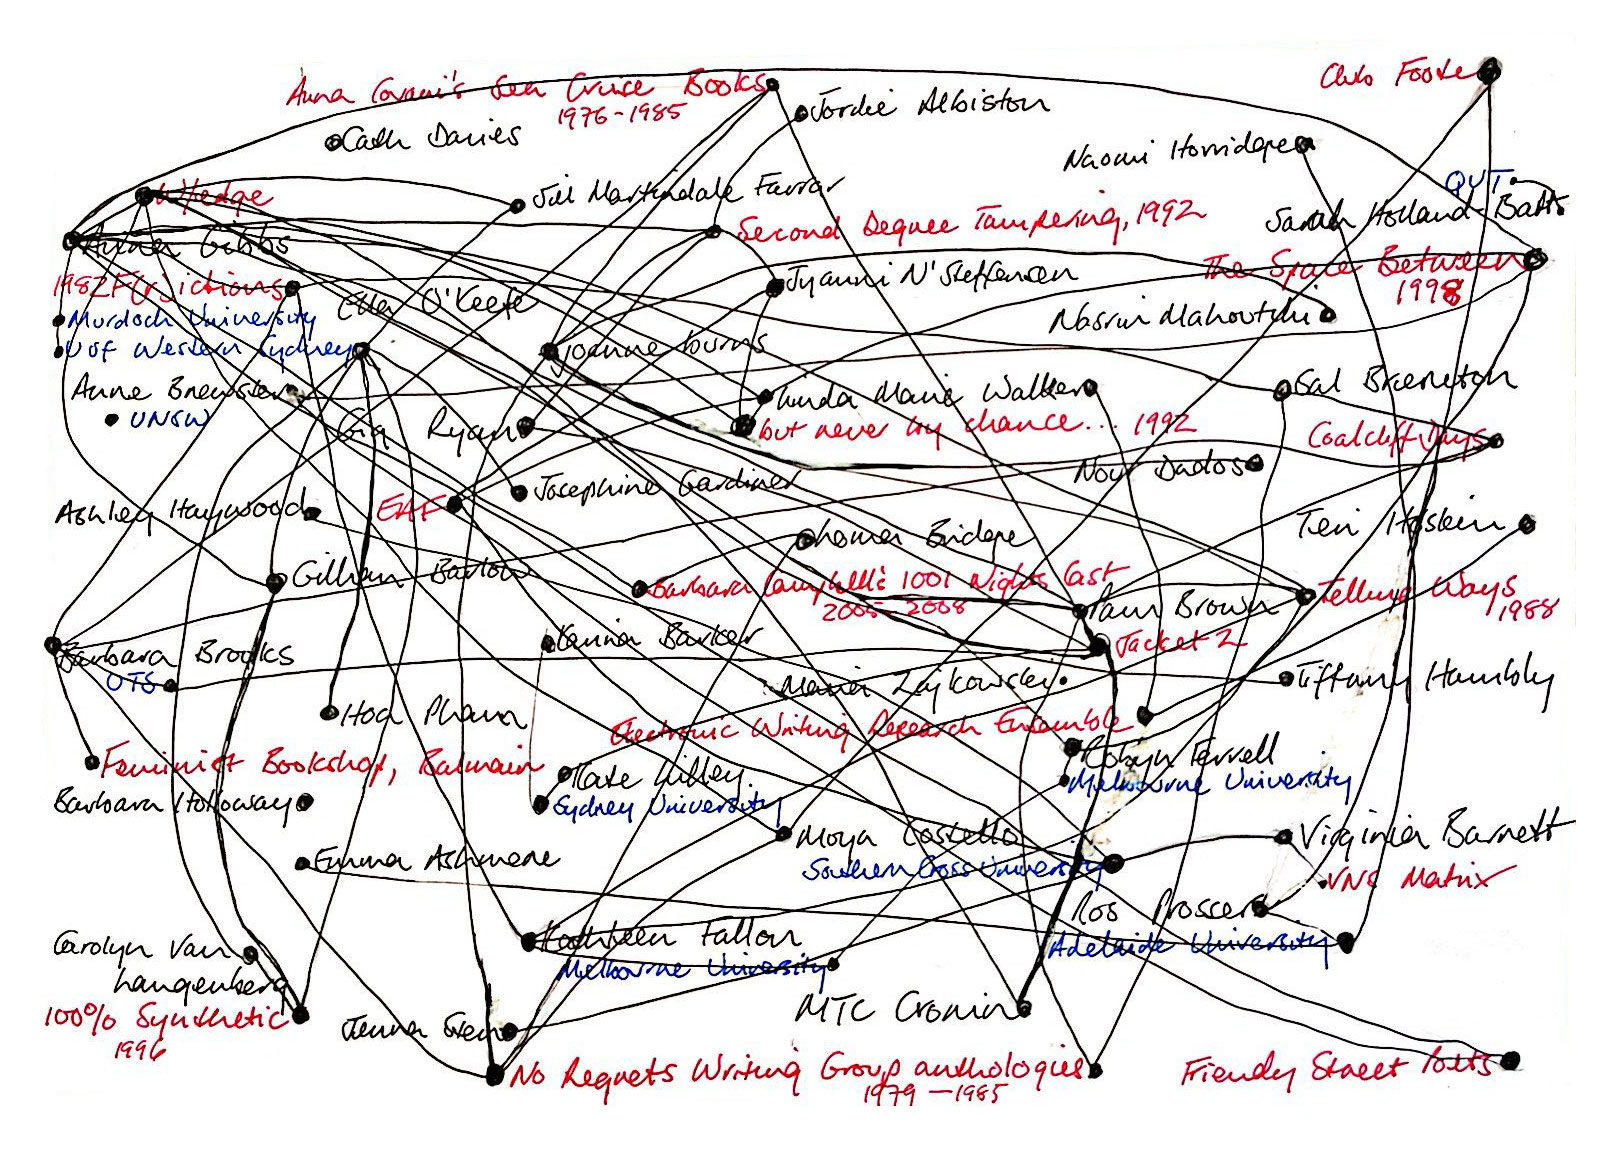 Anna Couani's Sea Cruise Books
1976-1985
Club Foote
Jordie Albiston
Cath Davies
Naomi Horridge
QUT
Wedge
Jill Martindale Farrar
Sarah Holland-Batts
Second Degree Tampering, 1992
Anna Gibbs
The Space Between
1998
1982 F(r)ictions
Jyanni N'Steffensen
Ella O'Keefe
Murdoch University
Nasrin Mahoutchi
U of Western Sydney
joanne burns
Anne Brewster
Linda Marie Walker
Sal Brereton
UNSW
Gig Ryan
but never by chance... 1992
Coalcliff Days
Noy Dados
Josephine Gardiner
Ashley Haywood
EAF
Teri Hoskin
Lorna Bridge
Gillian Barlow
Barbara Campbell's 1001 Nights Cast
2005-2008
Pam Brown
Telling Ways
1988
Karina Barker
Jacket 2
Barbara Brooks
UTS
Maria Zajkowski
Tiffany Hambly
Hoa Pham
Electronic Writing Research Ensemble
Robyn Ferrell
Melbourne University
Feminist Bookshop, Balmain
Kate Lilley
Sydney University
Barbara Holloway
Moya Costello
Southern Cross University
Virginia Barratt
VNS Matrix
Emma Ashmere
Ros Prosser
Adelaide University
Kathleen Fallon
Melbourne University
Carolyn Van
Langenberg
100% Synthetic
1996
MTC Cronin
Jenna
No Regrets Writing Group anthologies
1979 - 1985
Friendly Street Poets